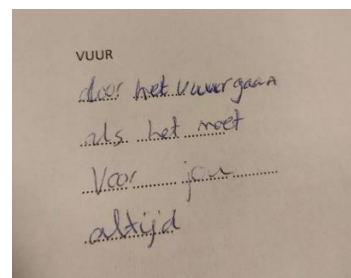 VUUR
door het vuur gaan
als het moet
Voor jou
altijd